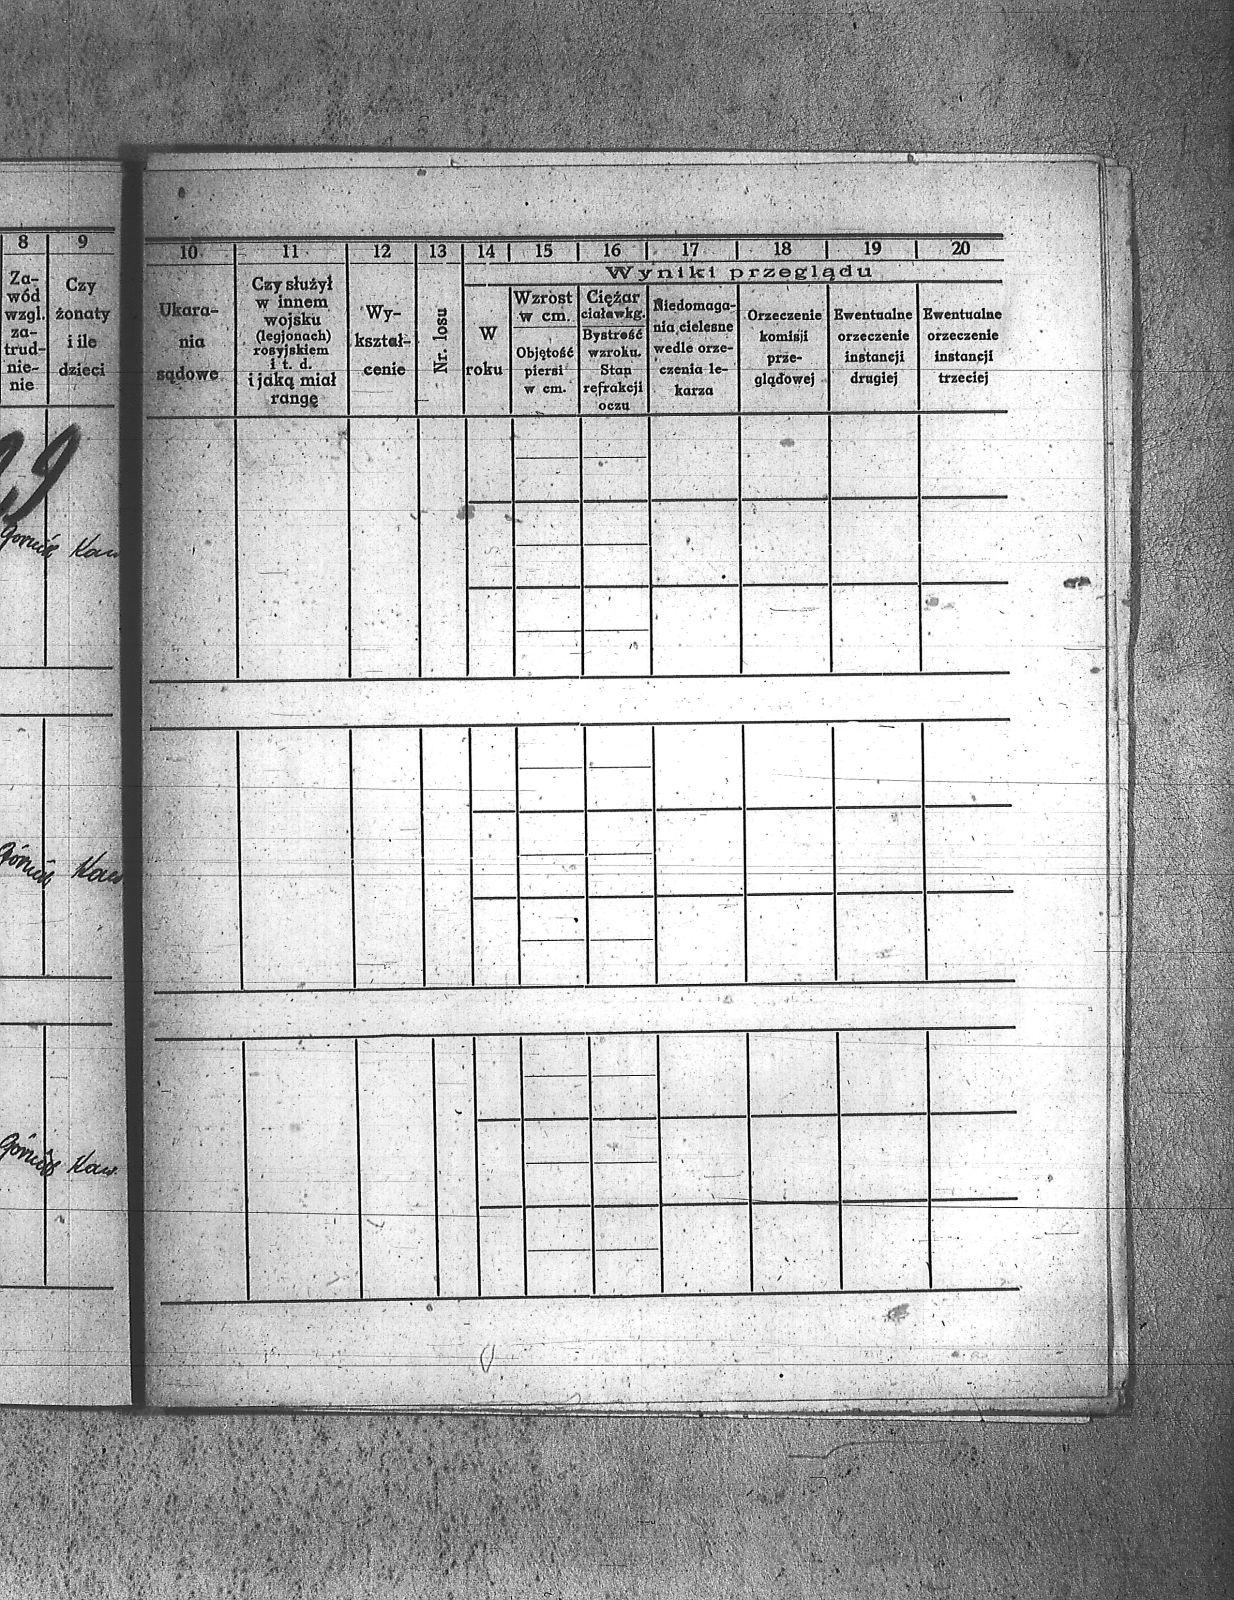 8
9
Za-
wód
wzgl.
za-
trud-
nie-
nie
Czy
żonaty
i ile
dzieci
Górnik Kaw
Górnik Kaw
Górnik Kaw.
10
11
12
13
14
15
16
17
18
19
20
Wyniki przeglądu
Ukara-
nia
sądowe
Czy służył
w innem
wojsku
(legjonach)
rosyjskiem
i t. d.
i jaką miał
rangę
Wy-
kształ-
cenie
Nr. losu
W
roku
Wzrost
w cm.
Objętość
piersi
w cm.
Ciężar
ciała w kg.
Bystrość
wzroku.
Stan
refrakcji
oczu
Niedomaga-
nia cielesne
wedle orze-
czenia le-
karza
Orzeczenie
komisji
prze-
glądowej
Ewentualne
orzeczenie
instancji
drugiej
Ewentualne
orzeczenie
instancji
trzeciej